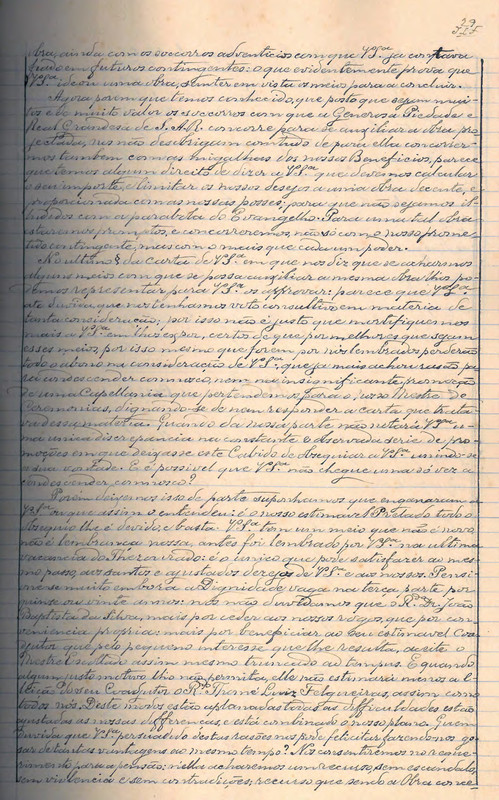 29
obra, ainda com os soccorros adventicios com que V.Sª. ja contava
fiado em futuros contingentes: o que evidentemente prova que
V.Sª. ideou uma obra, sem ter em vista os meios para a concluir.
Agora porem que temos conhecido, que posto que sejam mui-
tos e de muito valor os soccorros com que a Generosa Piedade e
Real Grandesa de S. A. R. concorre para se auxiliar a obra pro-
jectada, nos não desobrigam comtudo de para ella concorrer-
mos tambem com as migalhas dos nossos Beneficios, parece
que temos algum direito de dizer a V.Sª. que devemos calcular
o seu importe, e limitar os nossos desejos a uma obra decente, e
proporcionada com as nossas posses; para que não sejamos il-
ludidos com a parabola do Evangelho. Para uma tal obra
estaremos promptos, e concorreremos, não só com o nosso prome-
tido contingente, mas com o mais que cada um poder.
No ultimo § da Carta de V.Sª. em que nos diz que se acharmos
alguns meios com que se possa auxiliar a mesma obra lhis po-
demos representar para V.Sª. os approvar: parece que V.Sª.
até duvida que nos tenhamos voto consultivo em materia de
tanta consideração, por isso não é justo que mortifiquemos
mais a V.Sª. em lhos expor, certos de que por melhores que sejam
esses meios, por isso mesmo que forem por nos lembrados perderão
todo o abono na consideração de V.Sª. que ja mais achou rasão pa-
ra condescender comnosco, nem na insignificante promoção
de uma Capellania que pertendemos para o nosso Mestre de
Ceremonias, dignando-se de nem responder a carta que trata-
va dessa materia. Quando da nossa parte não notará V.Sª. u-
ma unica discrepancia na constante e observada serie de pro-
moções em que deixasse este Cabido de obsequiar a V.Sª. unindo-se
a sua vontade. E é possivel que V.Sª. não chegue uma só vez a
condescender comnosco?
Porem deixemos isso de parte supunhamos que enganaram a
V.Sª. ou que assim o entendeu: é o nosso estimavel Prelado todo o
obsequio lhe é devido, e basta. V.Sª. tem um meio que não é novo,
não é lembrança nossa, antes foi lembrado por V.Sª. na ultima
vacancia do Thezourado: é o unico que pode satisfazer ao mes-
mo passo, aos santos e ajustados desejos de V.Sª. e aos nossos. Pensi-
one-se muito embora a Dignidade vaga na terça parte por
quinse ou vinte annos: nós não duvidamos que o R. Dr. João
Baptista da Silva, mais por ceder aos nossos rogos, que por con-
veniencia propria: mais por beneficiar ao seu estimavel Coad-
jutor que pelo pequeno interesse que lhe resulta, aceite o
Mestrescolado assim mesmo truncado ao tempus. E quando
algum justo motivo lho não permita, elle não estimará menos a el-
leição do seu Coadjutor o R. Thomé Luiz Felgueiras, assim como
todos nós. Deste modo estão aplanadas todas as difficuldades estão
ajustadas as nossas differenças, e está combinado o nosso plano. Quem
duvida que V.Sª. persuadido destas rasões nos pode felicitar fazendo-nos go-
sar de tantas vantagens ao mesmo tempo? Nós consentiremos no reque-
rimento para a pensão: nella acharemos um recurso, sem escandalo,
sem violencia e sem contradições; recurso que sendo a obra come-